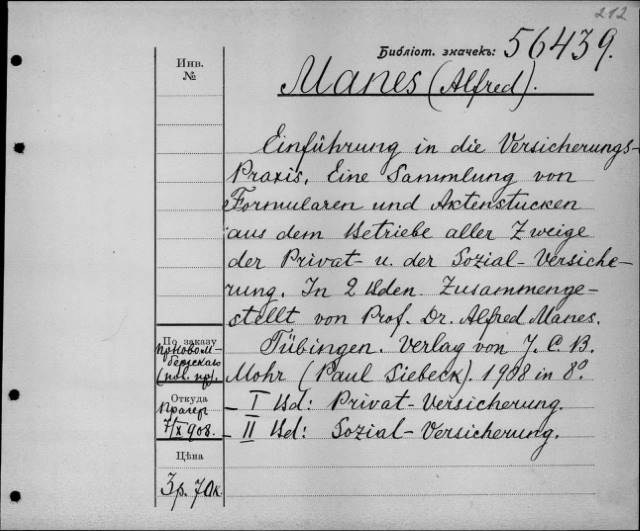 212
Библіот. значекъ: 56439.
Инв.
№
Manes (Alfred).
Einführung in die Versicherungs-
Praxis. Eine Sammlung von
Formularen und Aktenstücken
aus dem Betriebe aller Zweige
der Privat- u. der Sozial-Versiche-
rung. In 2 Bden. Zusammenge-
stellt von Prof. Dr. Alfred Manes.
Tübingen. Verlag von J. C. B.
Mohr (Paul Siebeck). 1908 in 8º
- I Bd: Privat-Versicherung.
- II Bd: Sozial-Versicherung.
По заказу
(нов. пр).
Откуда
Прагер
7/X 908.
Цѣна
3р. 70к